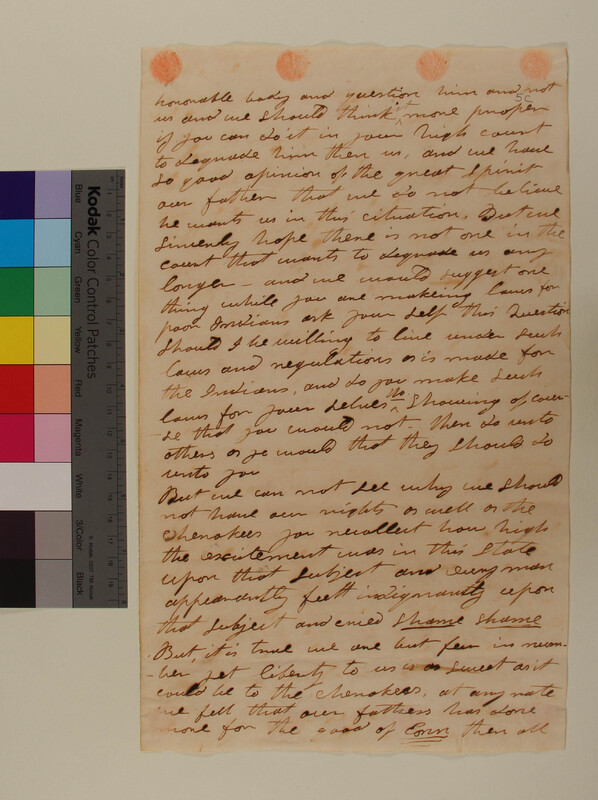 5c
honorable body and question him and not
us and we should think it more proper
if you can do it in your high court
to degrade him then us, and we have
so good opinion of the great spirit
our father that we do not believe
he wants us in this cituation. But we
sincerely hope there is not one in the
court that wants to degrade us any
longer - and we would suggest one
thing while you are making laws for
poor Indians ask your self this Question
should I be willing to live under such
laws and regulations as is made for
the Indians, and do you make such
laws for your selves no showing of cour-
-se that you would not - then do unto
others as ye would that they should do
unto you
But we can not see why we should
not have our rights as well as the
Cherokees you recollect how high
the excitement was in this State
upon that subject and every man
appearantly felt indignantly upon
that subject and cried shame shame
But, it is true we are but few in num-
-ber yet liberty to us is as sweet as it
could be to the Cherokees, at any rate
we fell that our fathers has done
more for the good of Conn then all
Kodak Color Control Patches
Blue
Cyan
Green
Yellow
Red
Magenta
White
3/Color
Black